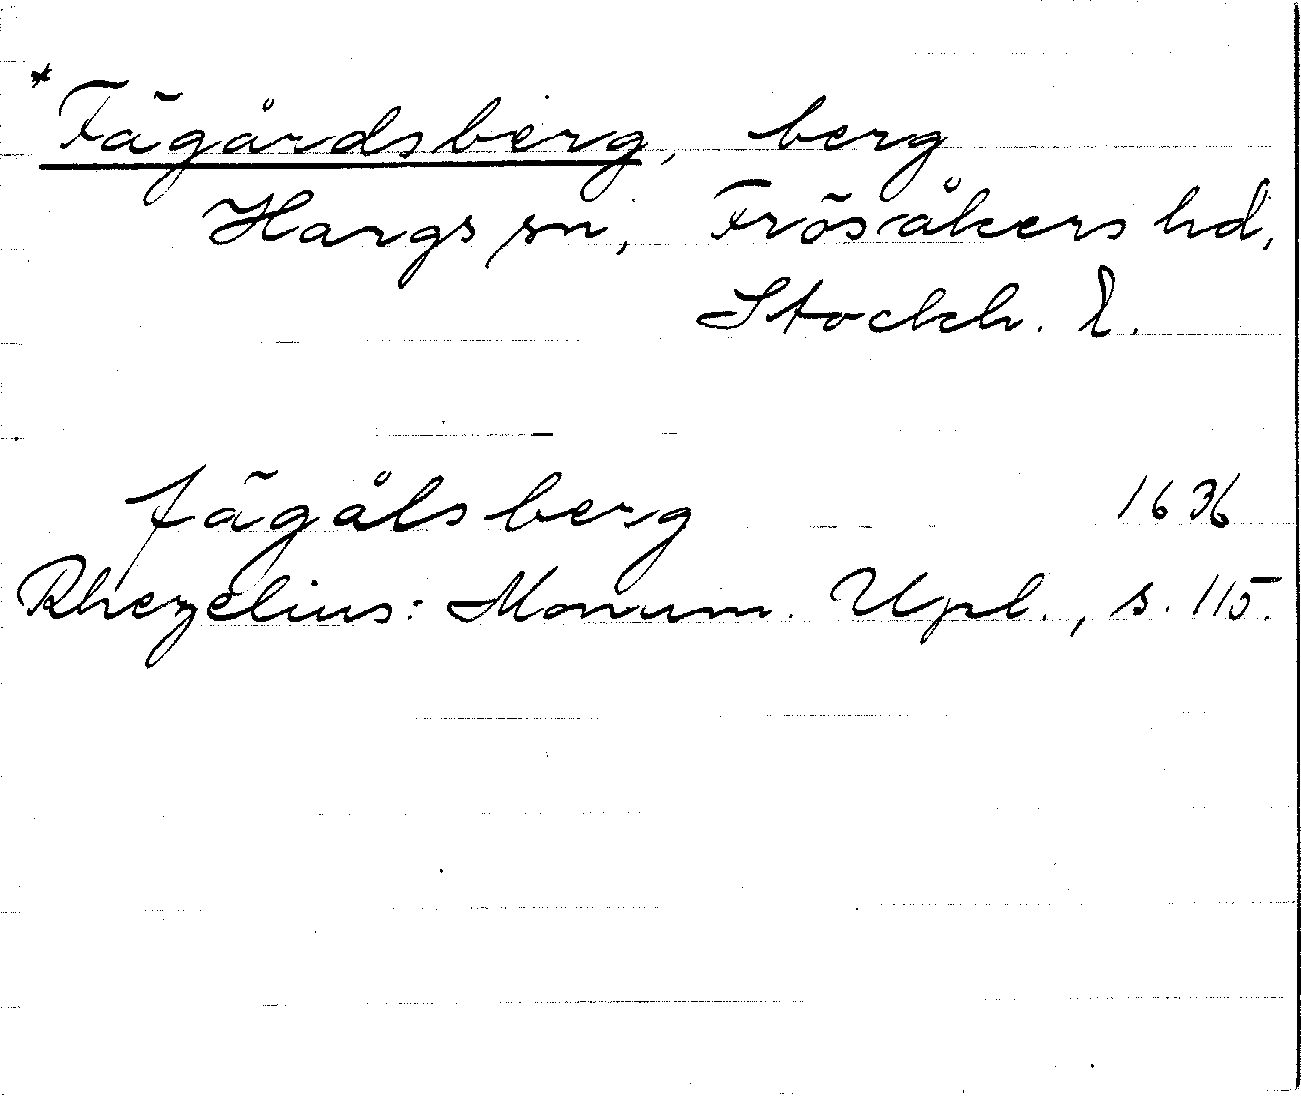 *Fägårdsberg, berg
Hargs sn, Frösåkers hd,
Stockh. l.
fägålsberg 1636
Rhezelius: Monum. Upl., s. 115.